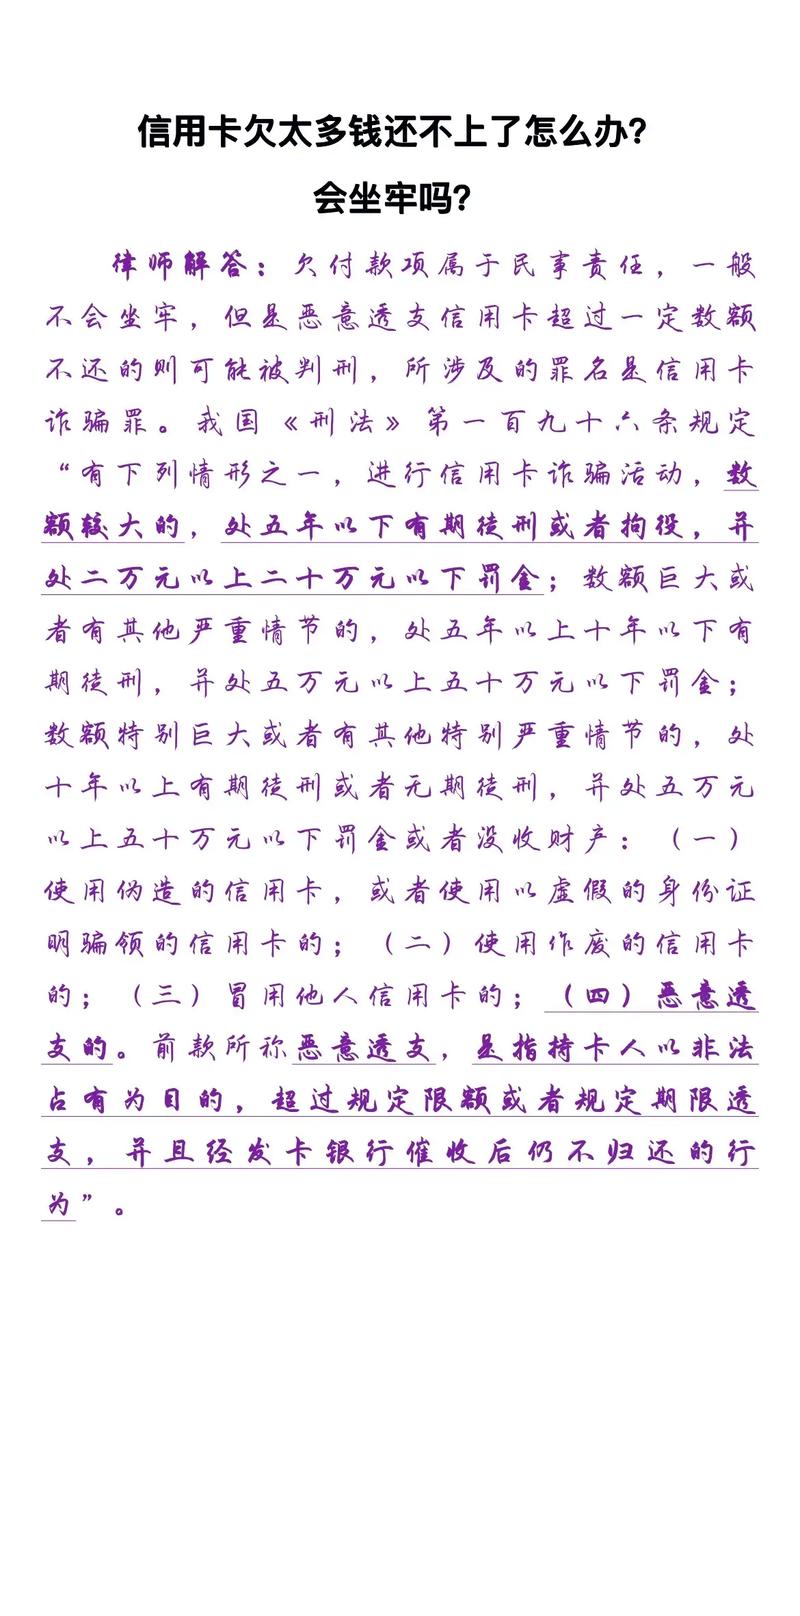 信用卡欠太多钱还不上了怎么办？
会坐牢吗？
律师解答：欠付款项属于民事责任，一般
不会坐牢，但是恶意透支信用卡超过一定数额
不还的则可能被判刑，所涉及的罪名是信用卡
诈骗罪。我国《刑法》第一百九十六条规定
“有下列情形之一，进行信用卡诈骗活动，数
额较大的，处五年以下有期徒刑或者拘役，并
处二万元以上二十万元以下罚金；数额巨大或
者有其他严重情节的，处五年以上十年以下有
期徒刑，并处五万元以上五十万元以下罚金；
数额特别巨大或者有其他特别严重情节的，处
十年以上有期徒刑或者无期徒刑，并处五万元
以上五十万元以下罚金或者没收财产：（一）
使用伪造的信用卡，或者使用以虚假的身份证
明骗领的信用卡的；（二）使用作废的信用卡
的；（三）冒用他人信用卡的；（四）恶意透
支的。前款所称恶意透支，是指持卡人以非法
占有为目的，超过规定限额或者规定期限透
支，并且经发卡银行催收后仍不归还的行
为”。